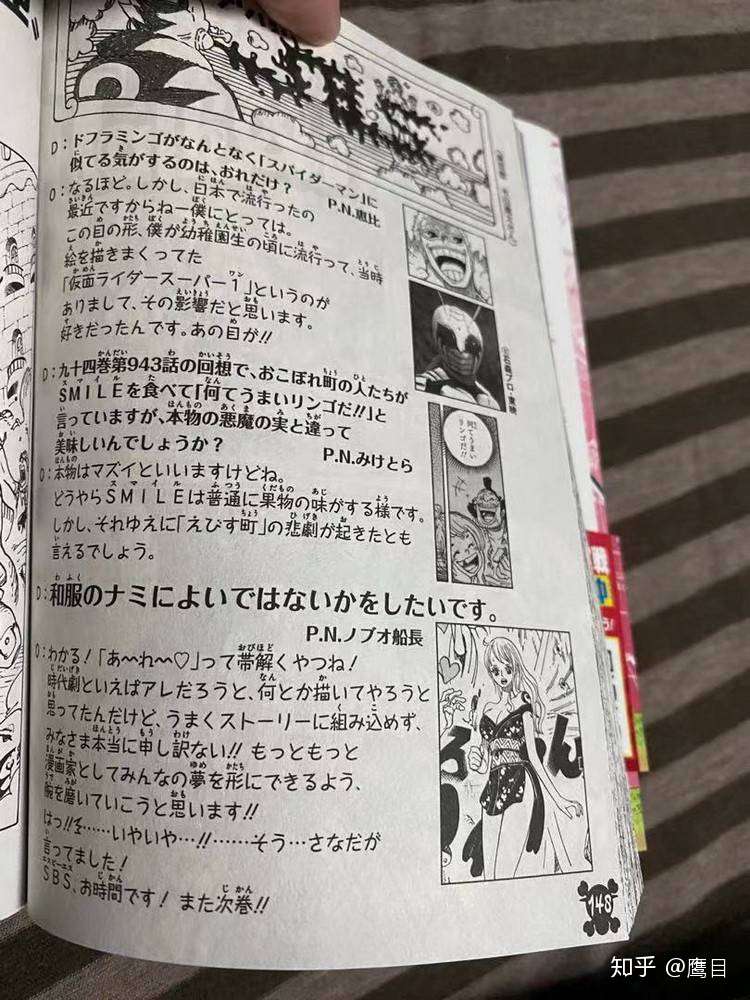 D:ドフラミンゴがなんとなく「スパイダーマン」に
似てる気がするのは、おれだけ?
P.N.恵比
O:なるほど。しかし、日本で流行ったの
最近ですからねー僕にとっては。
この目の形、僕が幼稚園生の頃に流行って、当時
絵を描きまくってた
「仮面ライダースーパー1」というのが
ありまして、その影響だと思います。
好きだったんです。あの目が!!
©石森プロ・東映
D:九十四巻第943話の回想で、おこぼれ町の人たちが
SMILEを食べて「何てうまいリンゴだ!!」と
言っていますが、本物の悪魔の実と違って
美味しいんでしょうか?
P.N.みけとら
何てうまい
リンゴだ!!
O:本物はマズイといいますけどね。
どうやらSMILEは普通に果物の味がする様です。
しかし、それゆえに「えびす町」の悲劇が起きたとも
言えるでしょう。
D:和服のナミによいではないかをしたいです。
P.N.ノブオ船長
O:わかる!「あ〜れ〜♡」って帯解くやつね!
時代劇といえばアレだろうと、何とか描いてやろうと
思ってたんだけど、うまくストーリーに組み込めず、
みなさま本当に申し訳ない!! もっともっと
漫画家としてみんなの夢を形にできるよう、
腕を磨いていこうと思います!!
はっ!!を……いやいや…!!……そう…さなだが
言ってました!
SBS、お時間です! また次巻!!
148
知乎 @鹰目